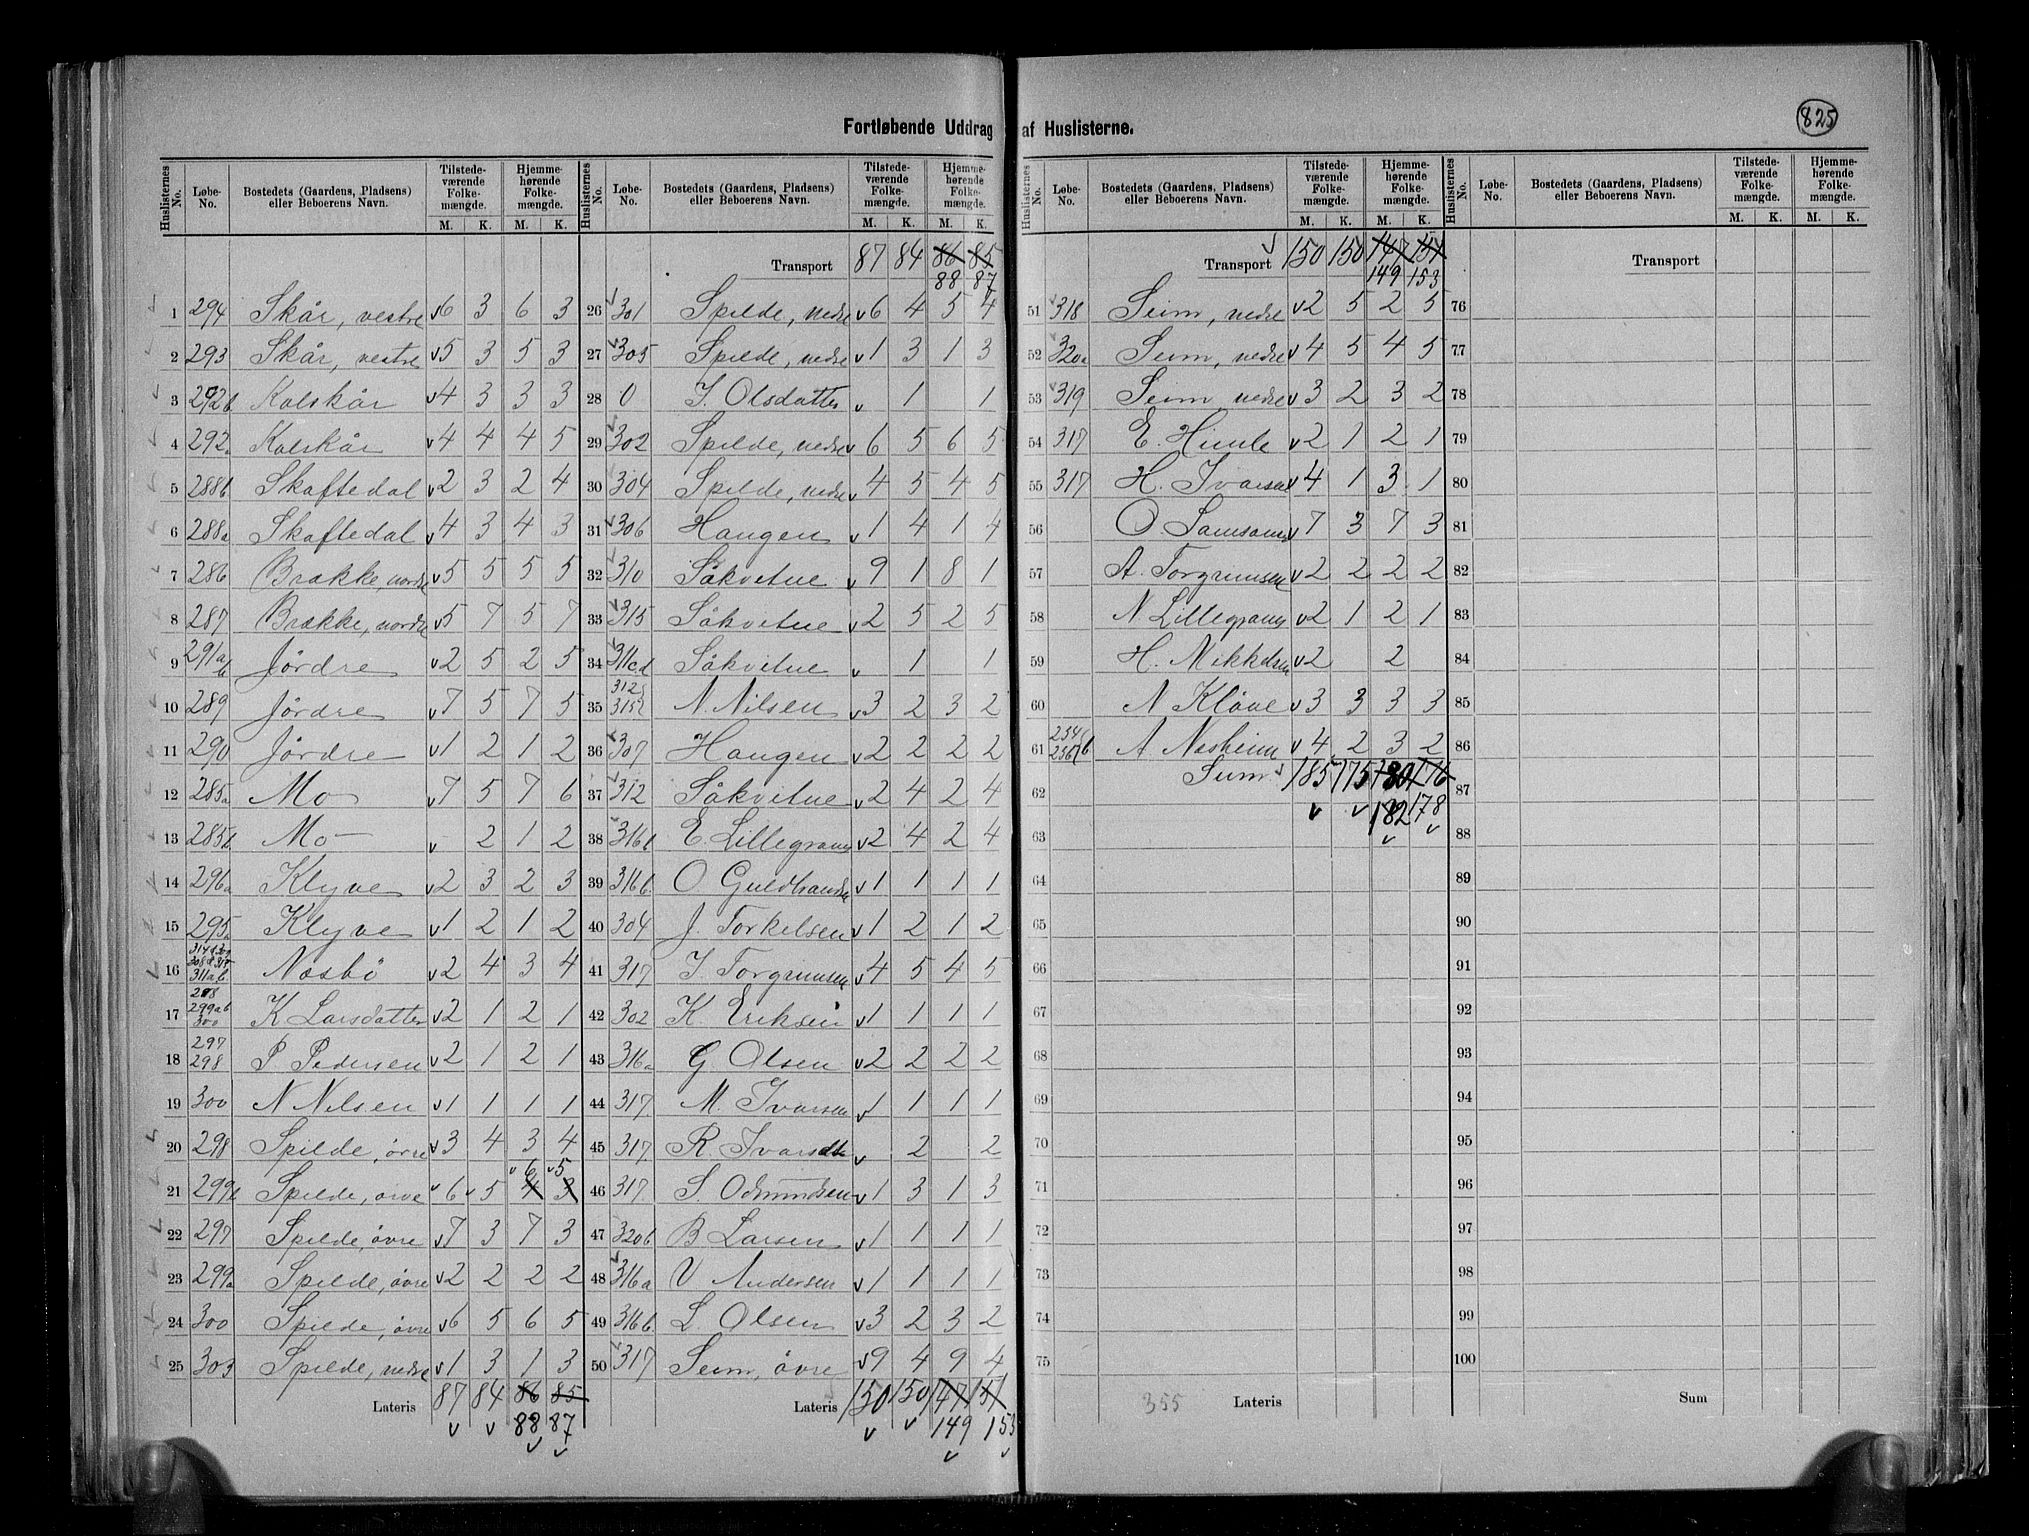 825
Fortløbende Uddrag af Huslisterne.
Huslisternes No. Løbe-No. Bostedets (Gaardens, Pladsens) eller Beboerens Navn. Tilstedeværende Folkemængde. M. K. Hjemmehørende Folkemængde. M. K.
1 294 Skår, vestre 6 3 6 3
2 293 Skår, vestre 5 3 5 3
3 292b Kolskår 4 3 3 3
4 292a Kolskår 4 4 4 5
5 288b Skaftedal 2 3 2 4
6 288a Skaftedal 4 3 4 3
7 286 Brække, nordre 5 5 5 5
8 287 Brække, nordre 5 7 5 7
9 291ab Jórdre 2 5 2 5
10 289 Jórdre 7 5 7 5
11 290 Jórdre 1 2 1 2
12 285a Mo 7 5 7 6
13 285b Mo 2 1 2
14 296a Klyve 2 3 2 3
15 295 Klyve 1 2 1 2
16 311ab Næsbó 2 4 3 4
17 298 299ab 300 K Larsdatter 2 1 2 1
18 297 298 P Pedersen 2 1 2 1
19 300 N Nilsen 1 1 1 1
20 298 Spilde, óvre 3 4 3 4
6 5
21 299b Spilde, óvre 6 5 4 3
22 297 Spilde, óvre 7 3 7 3
23 299a Spilde, óvre 2 2 2 2
24 300 Spilde, óvre 6 5 6 5
25 303 Spilde, nedre 1 3 1 3
Lateris 87 84 86 85
88 87
Huslisternes No. Løbe-No. Bostedets (Gaardens, Pladsens) eller Beboerens Navn. Tilstedeværende Folkemængde. M. K. Hjemmehørende Folkemængde. M. K.
Transport 87 84 86 85
88 87
26 301 Spilde, nedre 6 4 5 4
27 305 Spilde, nedre 1 3 1 3
28 0 I. Olsdatter 1 1
29 302 Spilde, nedre 6 5 6 5
30 304 Spilde, nedre 4 5 4 5
31 306 Haugen 1 4 1 4
32 310 Såkvitne 9 1 8 1
33 315 Såkvitne 2 5 2 5
34 311cd Såkvitne 1 1
35 312 3152 N. Nilsen 3 2 3 2
36 307 Haugen 2 2 2 2
37 312 Såkvitne 2 4 2 4
38 316b E. Lillegraven 2 4 2 4
39 316b O Guldbrandsen 1 1 1 1
40 304 J. Torkelsen 1 2 1 2
41 317 I. Torgrimsen 4 5 4 5
42 302 K. Eriksen 1 1 1 1
43 316a G Olsen 2 2 2 2
44 317. M. Ivarsen 1 1 1 1
45 317. R. Ivarsdtr 2 2
46 317. S. Odmundsen 1 3 1 3
47 320b B Larsen 1 1 1 1
48 316a V Andersen 1 1 1 1
49 316b L. Olsen 3 2 3 2
50 317 Seim, óvre 9 4 9 4
Lateris 150 150 147 151
149 153
Huslisternes No. Løbe-No. Bostedets (Gaardens, Pladsens) eller Beboerens Navn. Tilstedeværende Folkemængde. M. K. Hjemmehørende Folkemængde. M. K.
Transport 150 150 147 151
149 153
51 318 Seim, nedre 2 5 2 5
52 320a Seim, nedre 4 5 4 5
53 319 Seim, nedre 3 2 3 2
54 317 E. Himle 2 1 2 1
55 317 H. Ivarsen 4 1 3 1
56 O Samsonsen 7 3 7 3
57 A. Torgrimsen 2 2 2 2
58 N Lillegraven 2 1 2 1
59 H. Mikkelsen 2 2
60 N Klóve 3 3 3 3
61 254 256b A. Næsheim 4 2 3 2
62 Sum 185 175 180 176
182 178
63
64
65
66
67
68
69
70
71
72
73
74
75
355 Lateris
Huslisternes No. Løbe-No. Bostedets (Gaardens, Pladsens) eller Beboerens Navn. Tilstedeværende Folkemængde. M. K. Hjemmehørende Folkemængde. M. K.
Transport
76
77
78
79
80
81
82
83
84
85
86
87
88
89
90
91
92
93
94
95
96
97
98
99
100
Sum